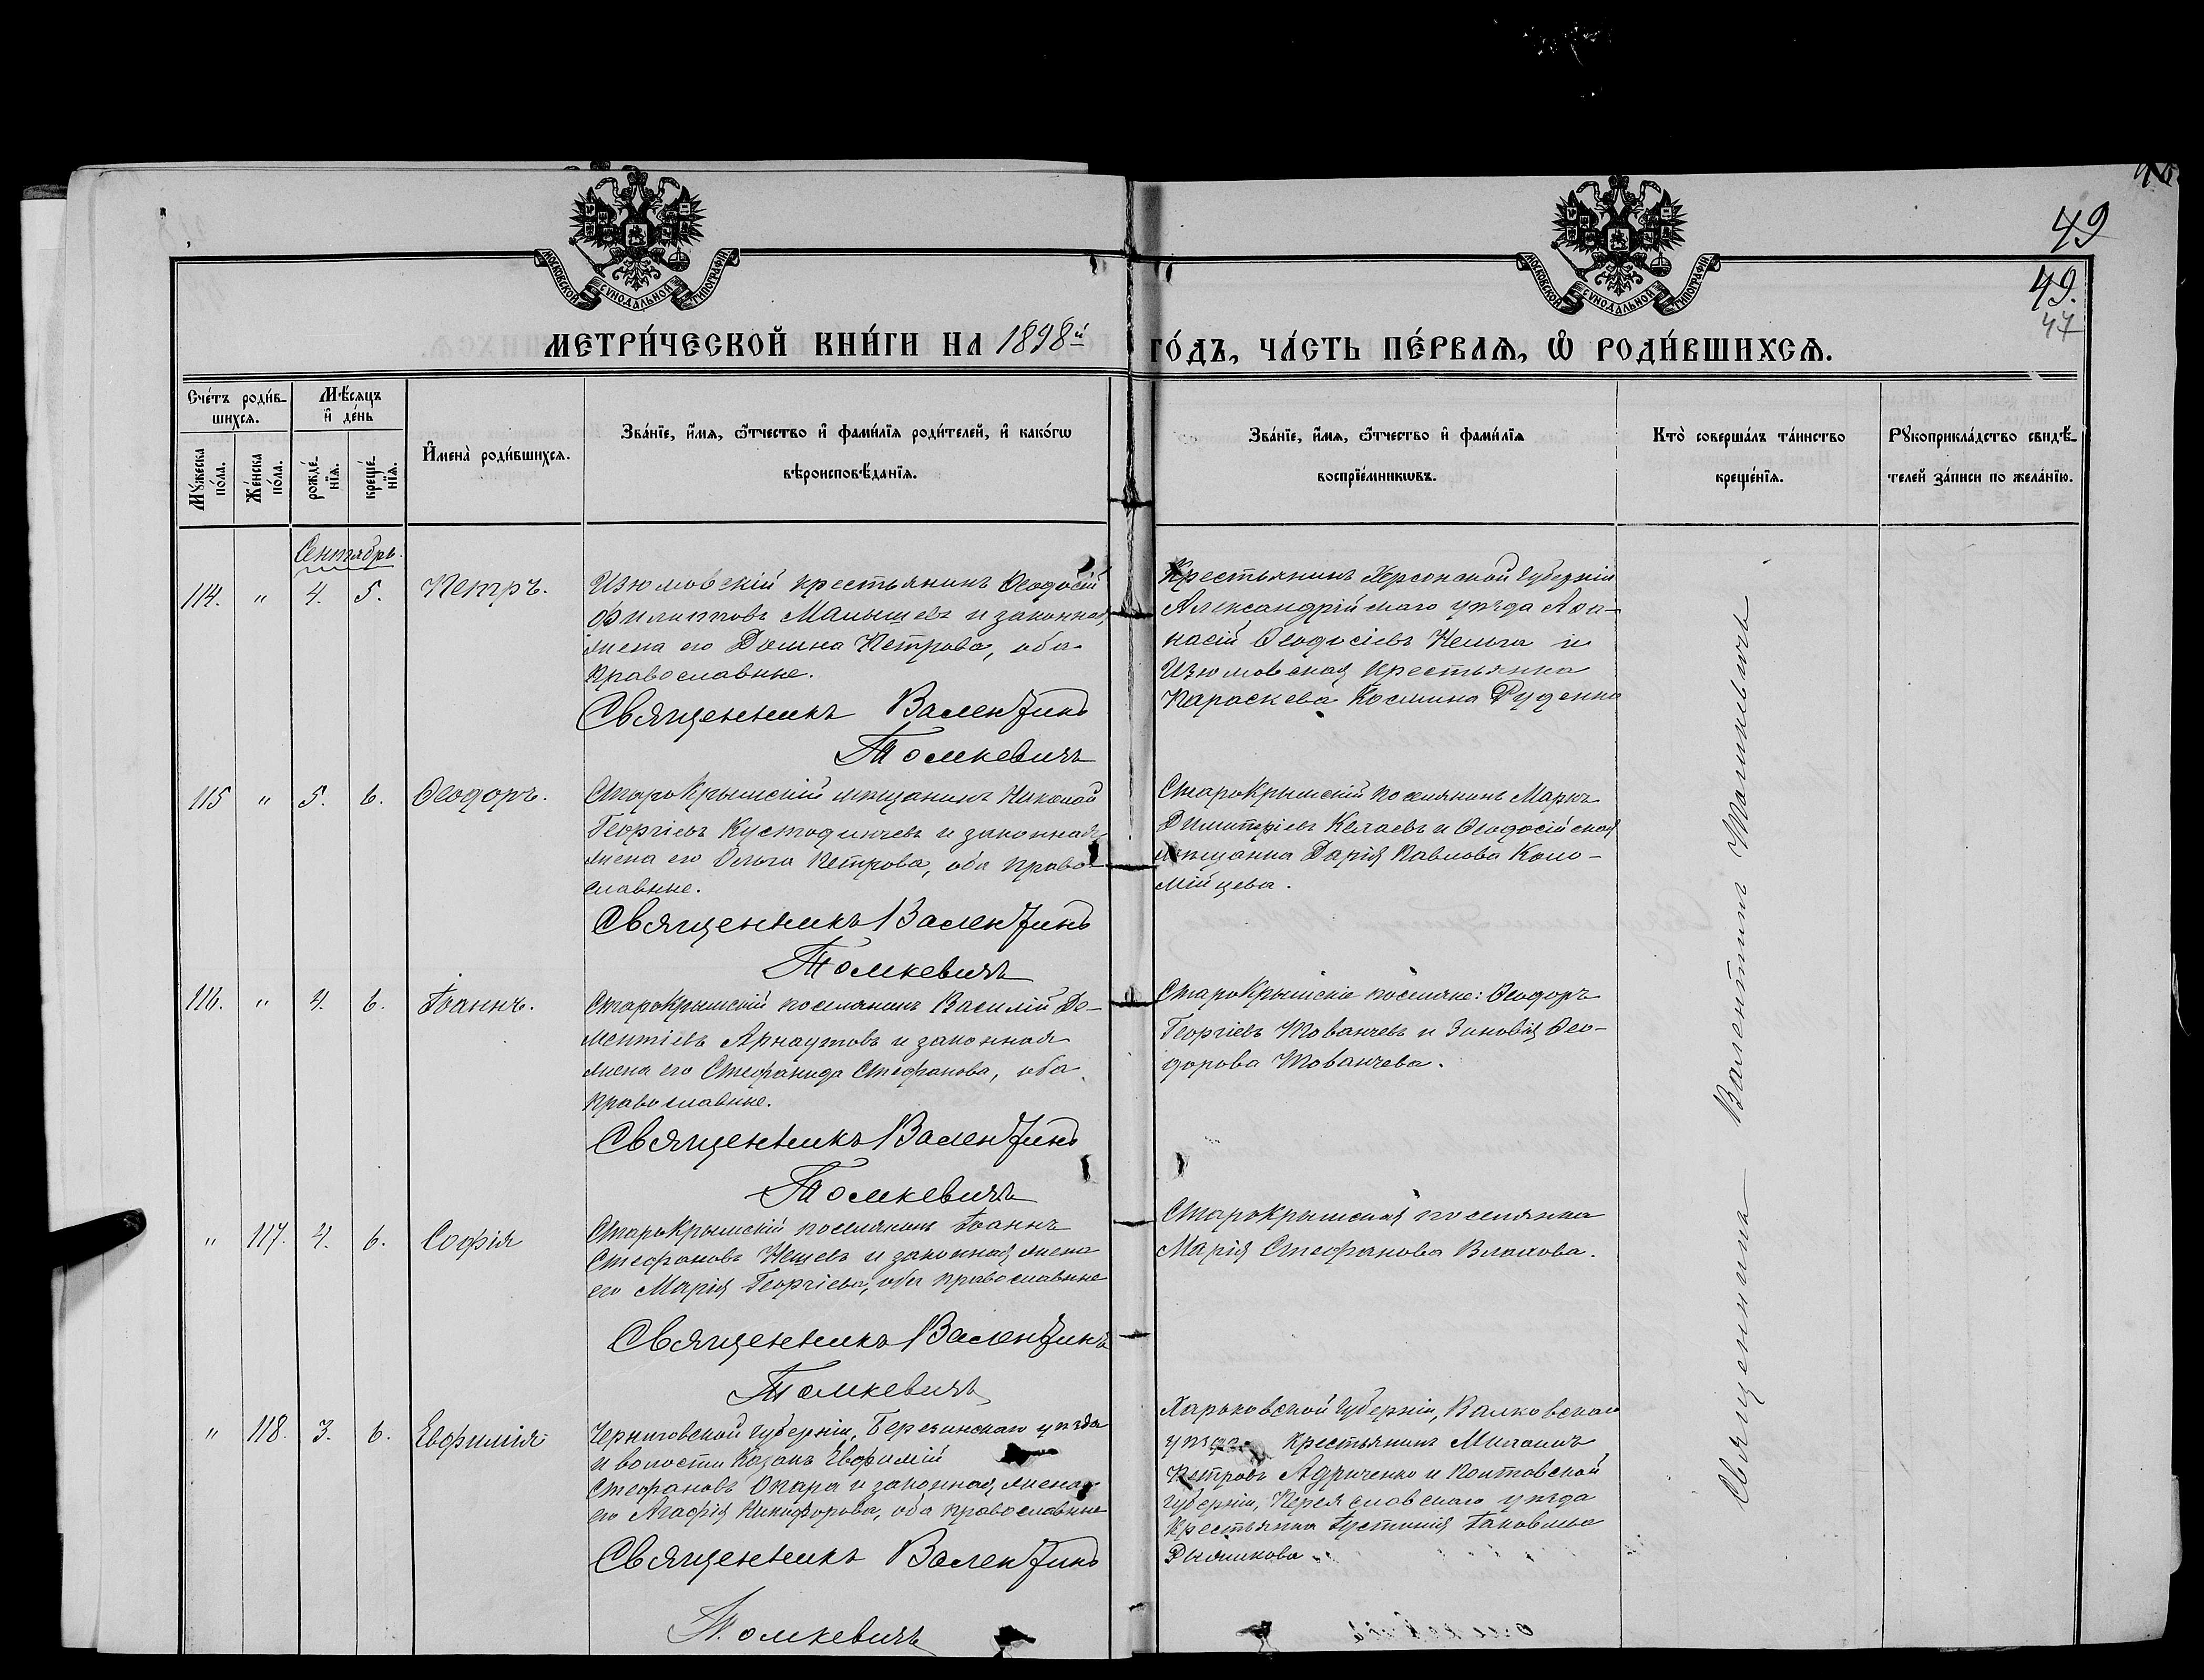 49
МОСКОВСКОЙ СУНОДАЛЬНОЙ ТИПОГРАФІИ
МОСКОВСКОЙ СУНОДАЛЬНОЙ ТИПОГРАФІИ
49.
47
МЕТРИ́ЧЕСКОЙ КНИ́ГИ НА 1898й ГО́ДЪ, ЧА́СТЬ ПЕ́РВАѦ, Ѡ҆ РОДИ́ВШИХСѦ.
Сче́тъ роди́в-
шихсѧ.
Мѣ́сѧцъ
и҆ де́нь
Мꙋ́жеска по́ла.
Же́нска по́ла.
рожде́-
нїѧ.
креще́-
нїѧ.
И҆мена̀ роди́вшихсѧ.
Зва́нїе, и҆́мѧ, ѻ҆́тчество и҆ фами́лїѧ роди́телей, и҆ како́гѡ
вѣроисповѣ́данїѧ.
Зва́нїе, и҆́мѧ, ѻ҆́тчество и҆ фами́лїѧ
воспрїе́мникѡвъ.
Кто̀ соверша́лъ та́инство
креще́нїѧ.
Рꙋкоприкла́дство свидѣ́-
телей за́писи по жела́нїю.
Сентябрь.
114. " 4. 5. Петръ.
Изюмовскій крестьянинъ Ѳеодосій
Филипповъ Малышевъ и законная
жена его Домна Петрова, оба
православные.
Священникъ Валентинъ
Томкевичъ
Крестьянинъ Херсонской губерніи
Александрійскаго уѣзда Аѳа-
насій Ѳеодосіевъ и
Изюмовская крестьянка
Параскева Космина Руденко
115 " 5. 6. Ѳеодоръ.
Старокрымскій мѣщанинъ Николай
Георгіевъ Кустодинчевъ и законная
жена его Ольга Петрова, оба право-
славные.
Священникъ Валентинъ
Томкевичъ
Старокрымскій поселянинъ Маркъ
Димитріевъ Келаевъ и Ѳеодосійская
мѣщанка Дарія Павлова Коло-
мійцева.
116. " 4. 6. Іоаннъ.
Старокрымскій поселянинъ Василій Де-
ментіевъ Арнаутовъ и законная
жена его Стефанида Стефанова, оба
православные.
Священникъ Валентинъ
Томкевичъ
Старокрымскіе поселяне: Ѳеодоръ
Георгіевъ Жованчевъ и Зиновія Ѳео-
дорова Жованчева.
" 117. 4. 6. Софія
Старокрымскій поселянинъ Іоаннъ
Стефановъ Нешевъ и законная жена
его Марія Георгіева, оба православные
Священникъ Валентинъ
Томкевичъ
Старокрымская поселянка
Марія Стефанова Влахова.
" 118. 3. 6. Евфимія
Черниговской губерніи, Березинскаго уѣзда
и волости казакъ Евфимій
Стефановъ Окара и законная жена
его Агафія Никифорова, оба православные
Священникъ Валентинъ
Томкевичъ
Харьковской губерніи, Валковскаго
уѣзда крестьянинъ Михаилъ
Петровъ Адриченко и Полтавской
губерніи, Переяславскаго уѣзда
крестьянка Іустинія Іаковлева
Священникъ Валентинъ Томкевичъ